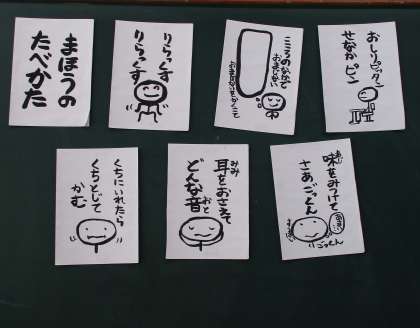 まほうの
たべかた
りらっくす
りらっくす
こころのなかで
おまじない
おしりピッタン
せなかピン
くちにいれたら
くちとじて
かむ
みみ
耳をおさえて
おと
どんな音
あじ
味をみつけて
さあごっくん
ごっくん